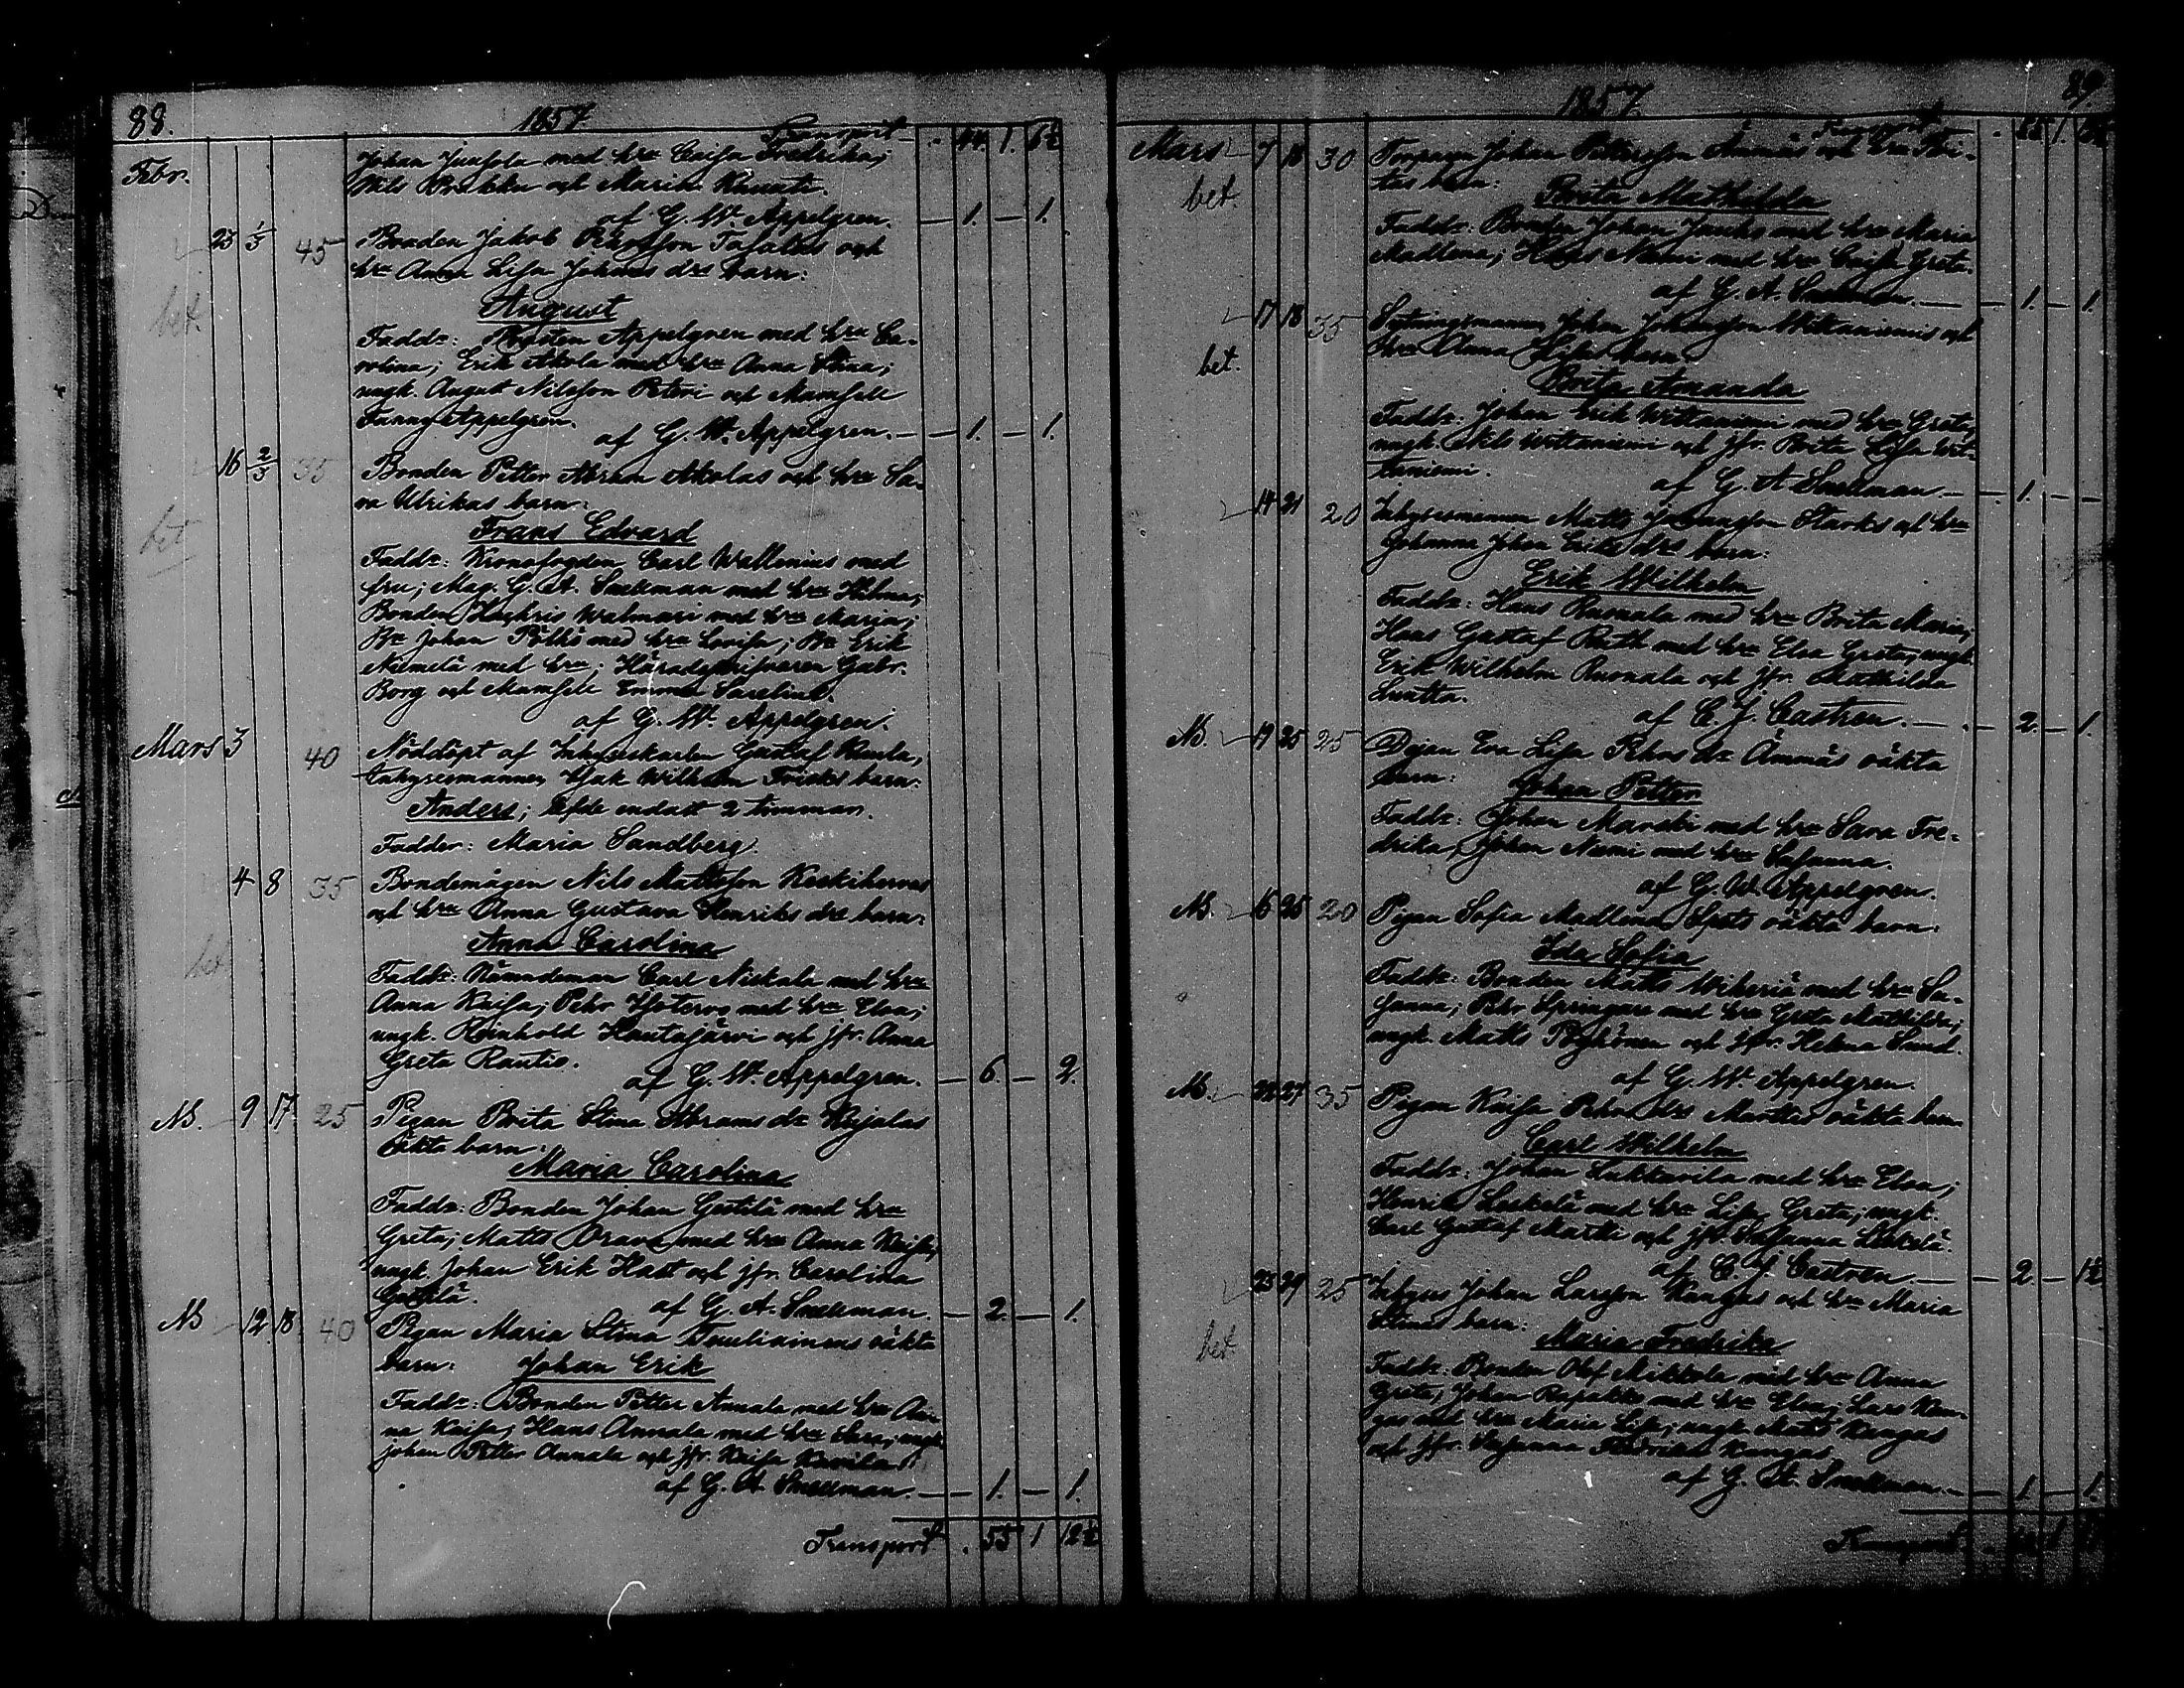 88.
1857
Transport . 44. 1. 6½
Febr.
Johan Juusola med hru Caisa Fredrika;
Nils och Maria
af G. W. Appelgren. — 1. — 1.
23 1/3 45 Bonden Jakob och
hru Anna Lisa Johans drs barn:
bet.
August
Faddr: Appelgren med hru Ca-
rolina; Erik Akola med hru Anna Stina;
ungk. August Nilsson och Mamsell
Fanny Appelgren.
af G. W. Appelgren. — 1. — 1.
16 2/3 35 Bonden Petter Abram Akolas och hru Sa-
ra Ulrikas barn:
bet
Frans Edvard
Faddr: Kronofogden Carl Wallenius med
fru; Mag. G. A. Snellman med hru Hilma;
Bonden Walmari med hru Maria;
Bn Johan Pölkö med hru Lovisa; Bn Erik
Niemelä med hru; Häradsskrifvaren Gabr.
Borg och Mamsell Emma
af G. W. Appelgren.
Mars 3 40 Nöddöpt af Gustaf
inhysesmannen Isak Wilhelm barn:
Anders; lefde endast 2 timmar.
Fadder: Maria Sandberg.
4 8 35 Bondemågen Nils Mattsson Koskikorvas
och hru Anna Gustava Henriks drs barn:
bet.
Anna Carolina
Faddr: Nämndeman Carl Niskala med hru
Anna Kaisa; Pehr med hru Elsa;
ungk. Reinhold Hautajärvi och jfr. Anna
Greta Rautio.
af G. W. Appelgren. — 6. — 2.
NB. 9. 17. 25 Pigan Brita Stina Abrams dr
oäkta barn:
Maria Carolina
Faddr: Bonden Johan Gestilä med hru
Greta; Matts Orava med hru Anna Kaisa;
ungk. Johan Erik Hast och jfr. Carolina
Gestilä.
af G. A. Snellman. — 2. — 1.
NB 12. 18. 40 Pigan Maria Stina Tuuliainens oäkta
barn: Johan Erik
Faddr: Bonden Petter Annala med hru An-
na Kaisa; Hans Annala med hru Sara; ungk.
Johan Petter Annala och jfr. Kaisa
af G. A. Snellman. — 1. — 1.
Transport . 55 1 12½
89.
1857.
Transport . 55 1. 12½
Mars 7 18 30 Torparen Johan Pettersson Ämmäs och hru Bri-
tas barn:
bet.
Brita Mathilda
Faddr: Bonden Johan med hru Maria
Madlena; Hans Niemi med hru Caisa Greta.
af G. A. Snellman. — 1. — 1.
17 18 35 Sytningsmannen Johan Johansson Wittaniemis och
hru Lisas barn:
bet.
Brita Amanda
Faddr: Johan Erik Wittaniemi med hru Greta;
ungk. Nils Wittaniemi och jfr. Brita Lisa Wit-
taniemi.
af G. A. Snellman. — 1. — —
14 21 20 Inhysesmannen Matts Johansson Starks och hru
Johanna Johan Eriks drs barn:
Erik Wilhelm
Faddr: Hans Ruonala med hru Brita Maria;
Hans Gustaf Rath med hru Elsa Greta; ungk.
Erik Wilhelm Ruonala och jfr. Mathilda
Luutta.
af C. J. Castren. — 2. — 1.
NB. 17 25 25 Pigan Eva Lisa Pehrs dr Ämmäs oäkta
barn: Johan Petter
Faddr: Johan med hru Sara Fre-
drika; Johan Niemi med hru Susanna.
af G. W. Appelgren.
NB. 15 25 20 Pigan Sofia Madlena Spets oäkta barn:
Ida Sofia
Faddr: Bonden Matts Wikeriä med hru Su-
sanna; Pehr Springare med hru Greta Mathilda;
ungk. Matts Pöyhönen och jfr. Helena Sund.
af G. W. Appelgren.
NB. 27 35 Pigan Kaisa Pehrs drs Marttis oäkta barn
Carl Wilhelm
Faddr: Johan med hru Elsa;
Henrik Leskelä med hru Lisa Greta; ungk.
Carl Gustaf Martti och jfr. Susanna Leskelä.
af C. J. Castren. — 2. — 1½
25 29 25 Inhyses Johan Larsson Kangas och hru Maria
Stinas barn:
bet
Maria Fredrika
Faddr: Bonden Olof Mikkola med hru Anna
Greta; Johan med hru Elsa; Lars Kan-
gas med hru Maria Lisa; ungk. Matts Kangas
och jfr. Susanna Fredrika Kangas.
af G. A. Snellman. — 1. — 1.
Transport